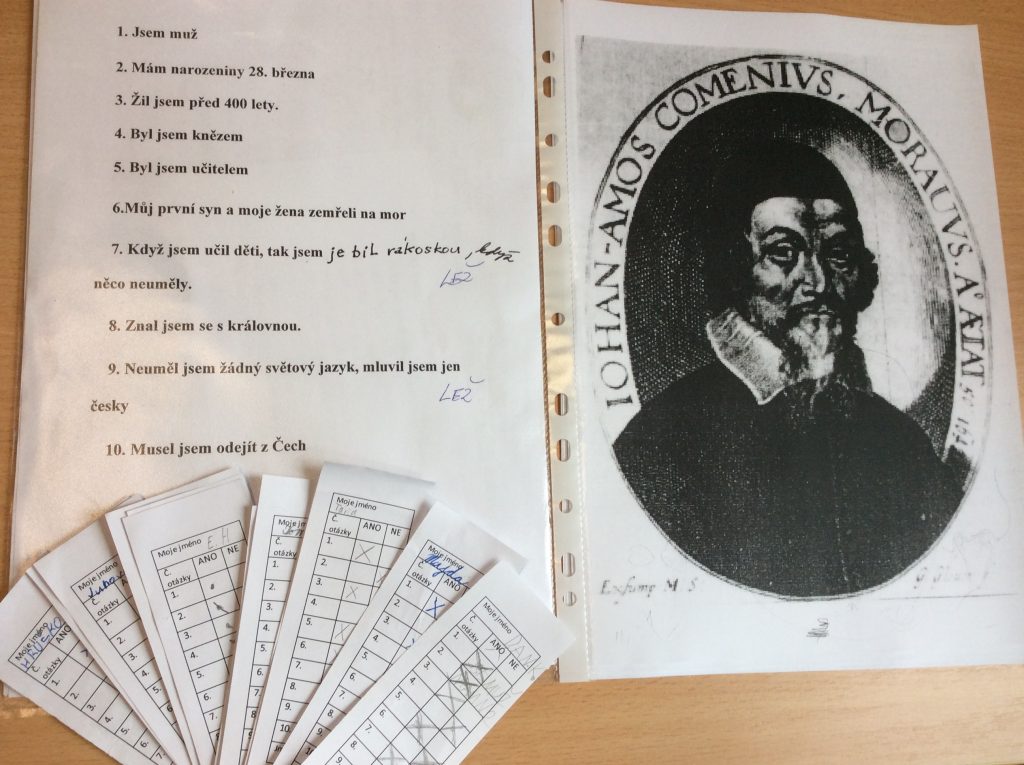 1. Jsem muž
2. Mám narozeniny 28. března
3. Žil jsem před 400 lety.
4. Byl jsem knězem
5. Byl jsem učitelem
6.Můj první syn a moje žena zemřeli na mor
7. Když jsem učil děti, tak jsem je bil rákoskou, když
LEŽ
něco neuměly.
8. Znal jsem se s královnou.
9. Neuměl jsem žádný světový jazyk, mluvil jsem jen
LEŽ
česky
10. Musel jsem odejít z Čech
IOHAN-AMOS COMENIVS, MORAVVS. A° ÆTAT
M S
Moje jméno
Č. otázky ANO
1.
2.
3.
4.
5.
6.
7.
Moje jméno
Č. otázky
1.
2.
3.
4.
5.
6.
7.
8.
9.
Moje jméno E. H
Č. otázky ANO NE
1.
2.
3.
4.
5.
6.
7.
8.
9.
Moje
Č. otázky
1.
2.
3.
4.
5.
6.
7.
8.
9.
10
Moje jméno
Č. otázky ANO NE
1.
2.
3.
4.
5.
6.
7.
8.
9.
10.
Moje jméno
Magda
Č. otázky ANO NE
1.
2.
3.
4.
5.
6.
7.
8.
9.
Moje jméno
Č. otázky ANO NE
1.
2.
3.
4.
5.
6.
7.
8.
9.